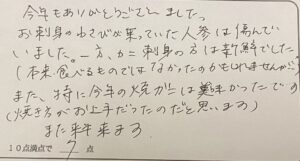 今年もありがとうございました。
お刺身のわさびが乗っていた人参は傷んで
いました。一方、カニ刺身の方は新鮮でした
(本来食べるものではなかったのかもしれませんが…)
また、特に今年の焼ガニは美味かったです
(焼き方がお上手だったのだと思います)
また来年来ます
10点満点で 7 点